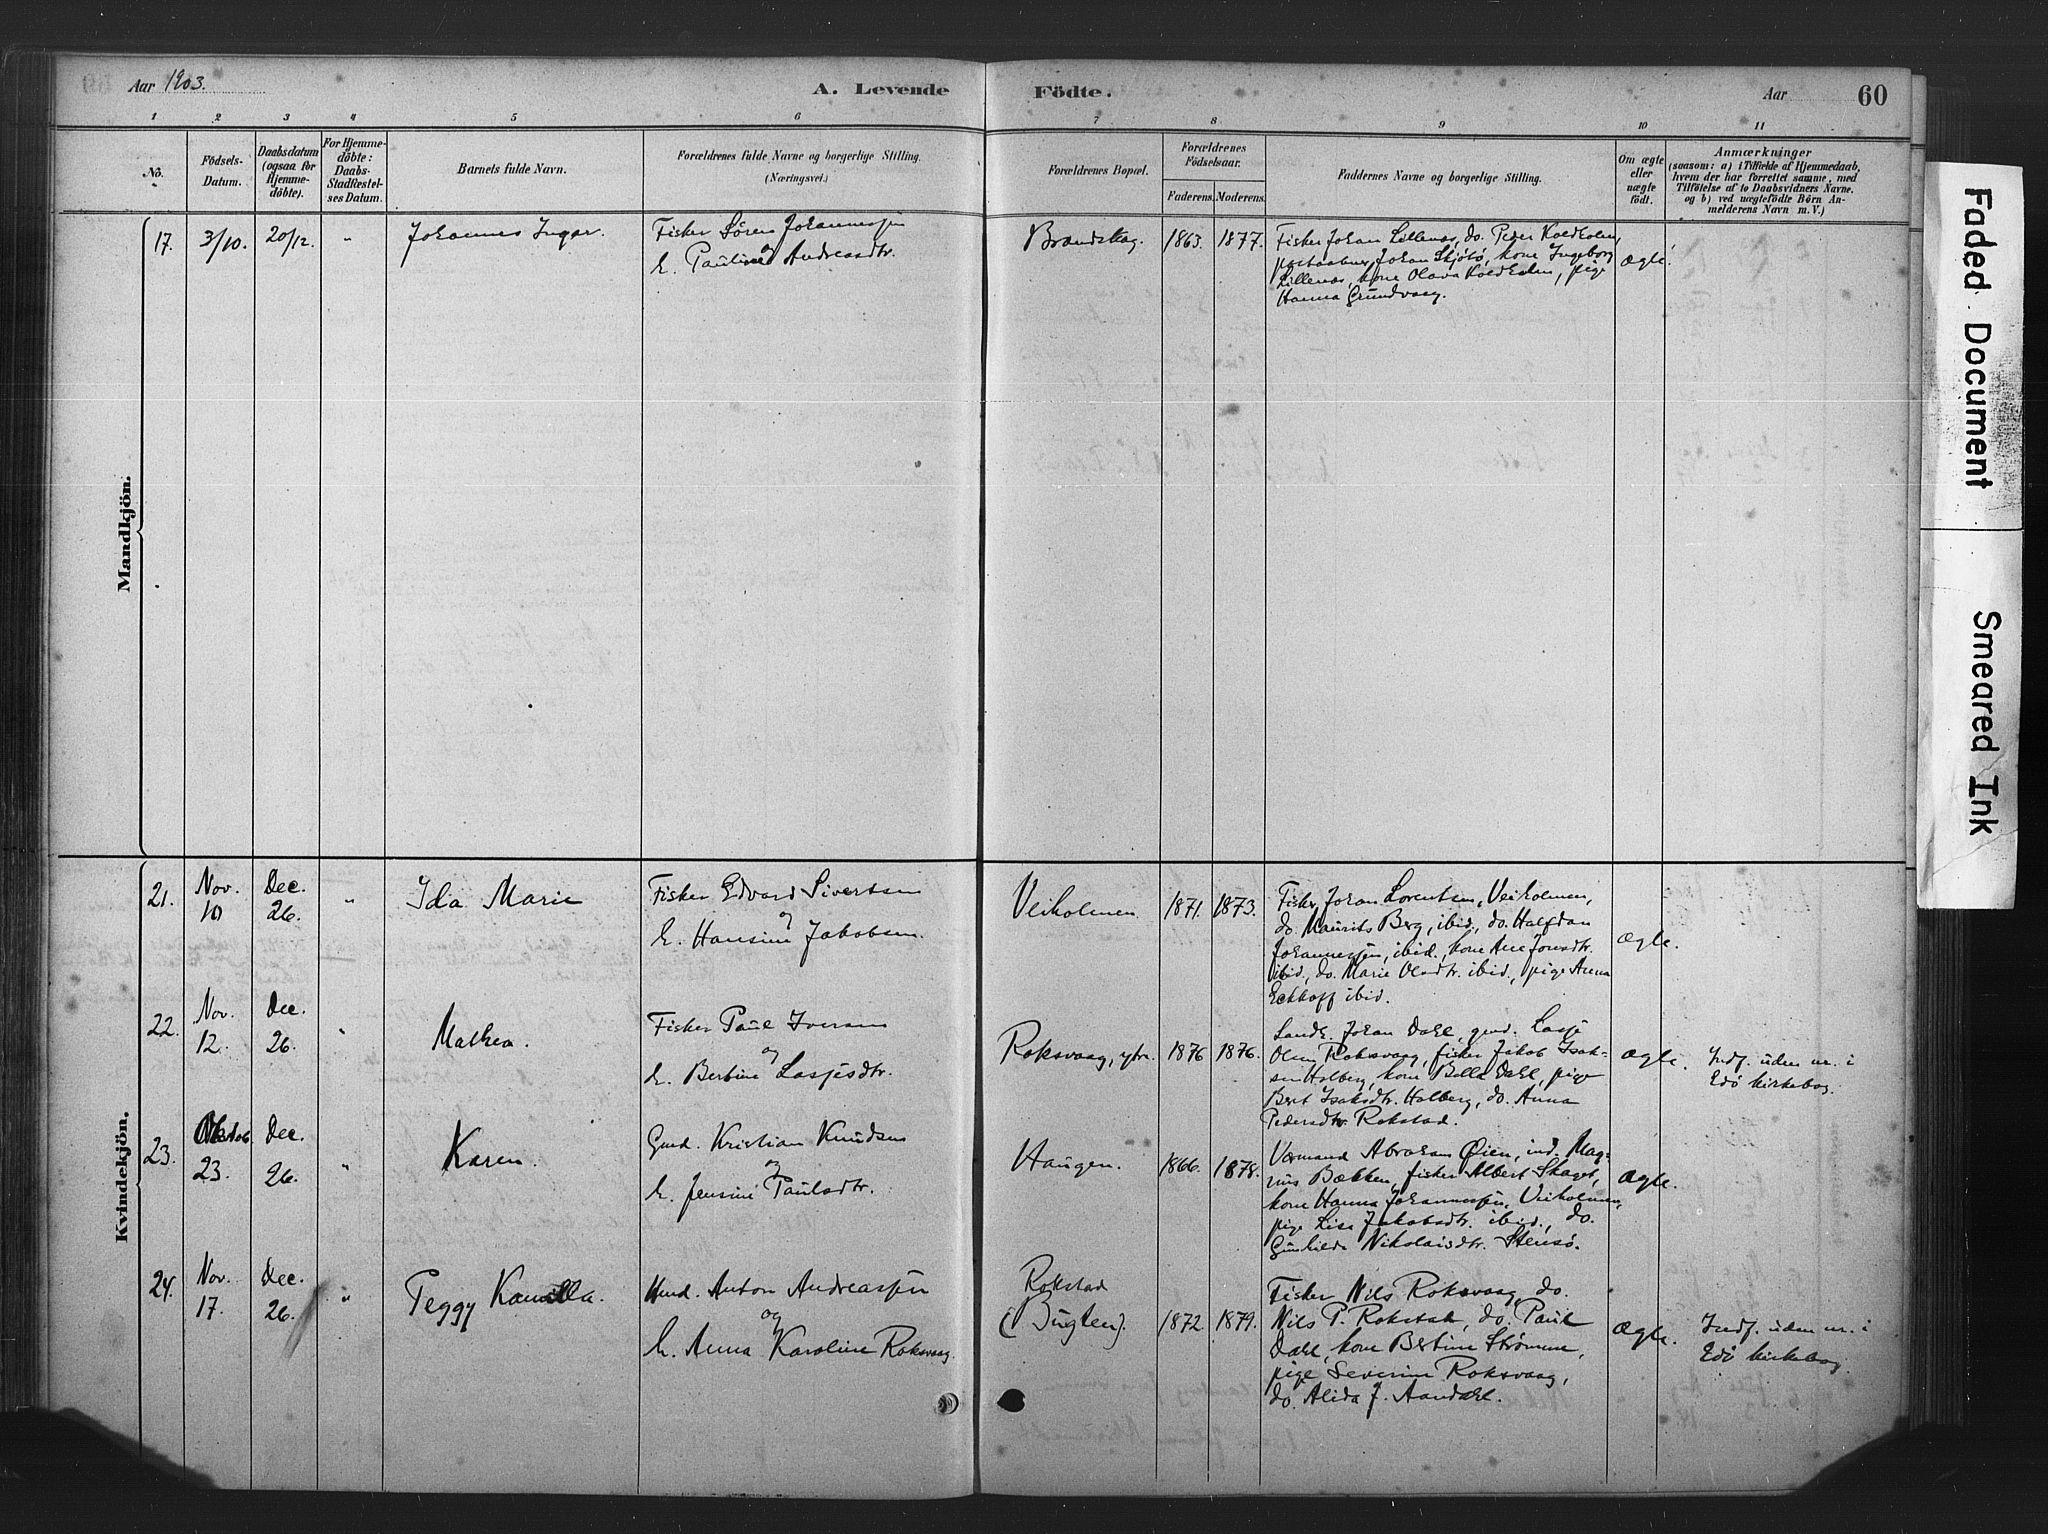 Aar 1903.
A. Levende Födte.
Aar
60
1 2 3 4 5 6 7 8 9 10 11
No.
Födsels-
Datum.
Daabsdatum
(ogsaa for
Hjemme-
döbte).
For Hjemme-
döbte:
Daabs-
Stadfæstel-
ses Datum.
Barnets fulde Navn.
Forældrenes fulde Navne og borgerlige Stilling.
(Næringsvei.)
Forældrenes Bopæl.
Forældrenes
Födselsaar.
Faderens. Moderens.
Faddernes Navne og borgerlige Stilling.
Om ægte
eller
uægte
födt.
Anmærkninger
(saasom: a) i Tilfælde af Hjemmedaab,
hvem der har forrettet samme, med
Tilföielse af to Daabsvidners Navne.
og b) ved uægtefödte Börn An-
melderens Navn m. V.)
Mandkjön.
17. 3/10. 20/12. " Johannes Ingar.
Fisker Sören Johannessen
og
h. Pauline Andreasdtr.
Brandskag. 1863. 1877.
Fisker Johan Lillenæs, do. Peder Koldholm,
postaabner Johan Skjölö, kone Ingeborg
Lillenæs, kone Olava Koldholm, pige
Hanna Grundvaag.
ægte.
Kvindekjön.
21. Nov. 10 Dec. 26. " Ida Marie
Fisker Edvard Sivertsen
og
h. Hansine Jakobsen.
Veiholmen 1871. 1873.
Fisker Johan Lorentsen, Veiholmen,
do. Maurits Berg, ibid., do. Halfdan
Johannessen, ibid., kone Ane Jonsdtr.
ibid., do. Marie Olsdtr. ibid., pige Anna
Eckhoff ibid.
ægte.
22. Nov. 12. Dec. 26. " Mathea.
Fisker Paul Iversen
og
h. Bertine Lassesdtr.
Roksvaag, ytre. 1876 1876.
Landh. Johan Dahl, gmd. Lasse
Olsen Roksvaag, fisker Jakob Isak-
sen Holberg, kone Bella Dahl, pige
Berit Isaksdtr. Holberg, do. Anna
Pedersdtr. Rokstad.
ægte.
Indf. uden nr. i
Edö kirkebog.
23. Oktob 23. Dec. 26. " Karen.
Gmd. Kristian Knudsen
og
h. Jensine Paulsdtr.
Haugen. 1866. 1878.
Vormand Abraham Øien, ind. Mag-
nus Bækken, fisker Albert Skaget,
kone Hanna Johannessen, Veiholmen,
pige Lise Jakobsdtr. ibid., do.
Gunhilde Nikolaisdtr. Stensö.
ægte.
24. Nov. 17. Dec. 26. " Peggy Kamilla.
Hmd. Anton Andreassen
og
h. Anna Karoline Roksvaag.
Rokstad
(Bugten). 1872. 1879.
Fisker Nils Roksvaag, do.
Nils P. Rokstad, do. Paul
Dahl, kone Bertine Strömme,
pige Severine Roksvaag,
do. Alida J. Aandahl.
ægte.
Indf. uden nr. i
Edö kirkebog.
Faded Document
Smeared Ink